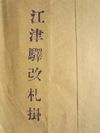 江津驛改札掛